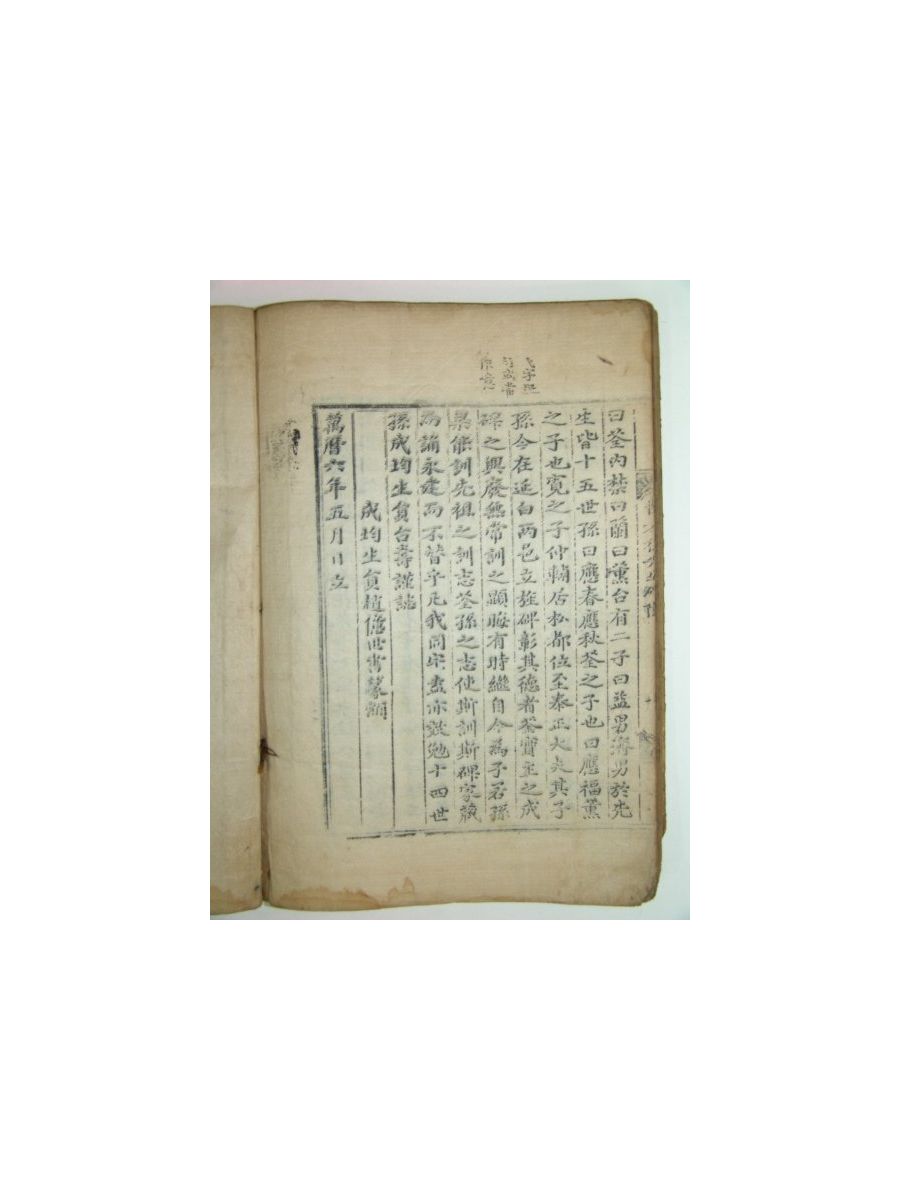 曰荃內禁曰蘭曰薰台有二子曰益男濟男於先
生皆十五世孫曰應春應秋荃之子也曰應福薰
之子也寬之子仲輔居松都位至奉正大夫其子
孫今在延白兩邑立旌碑彰其德者荃實主之成
碑之興廢無常訓之顯晦有時繼自今為子若孫
果能訓先祖之訓志荃孫之志使斯訓斯碑家藏
而誦永建而不替乎凡我同宗盍亦玆勉十四世
孫成均生員台壽謹誌
成均生員趙世書篆額
萬曆六年五月日立